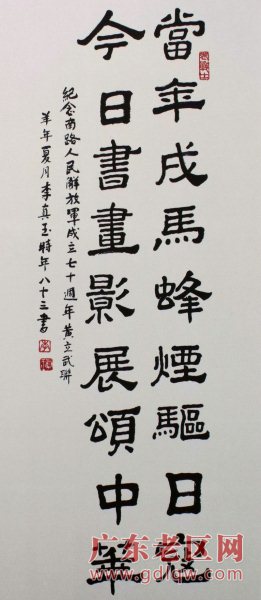 當年戌馬蜂煙驅日寇
今日書畫影展頌中華
紀念南路人民解放軍成立七十週年黃立武聯
羊年夏月李真玉時年八十三書
广东老区网
www.gdlqw.com